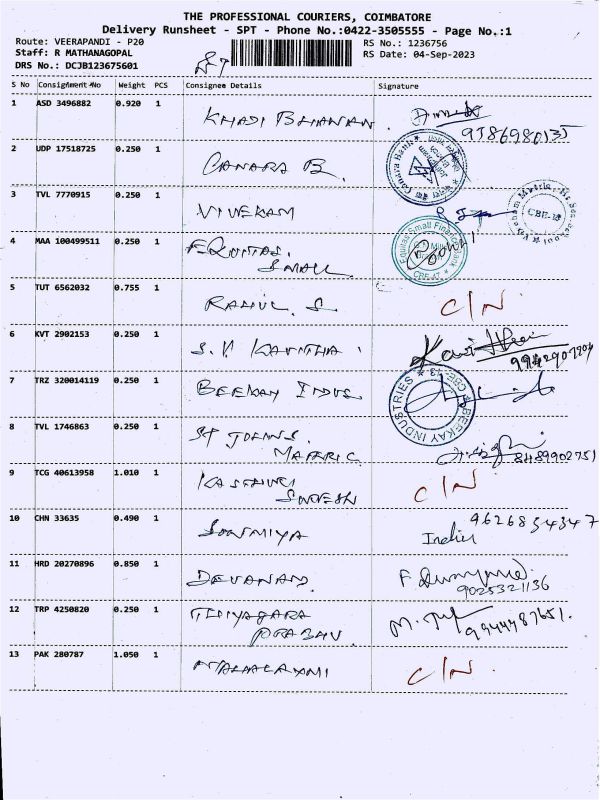 THE PROFESSIONAL COURIERS, COIMBATORE
Delivery Runsheet - SPT - Phone No.:0422-3505555 - Page No.:1
Route: VEERAPANDI - P20 RS No.: 1236756
Staff: R MATHANAGOPAL RS Date: 04-Sep-2023
DRS No.: DCJB123675601
S No Consignment No Weight PCS Consignee Details Signature
1 ASD 3496882 0.920 1 KHADI BHAVAN
2 UDP 17518725 0.250 1 CANARA B.
Canara Bank
3 TVL 7770915 0.250 1 VIVEKAM
CBE-18
4 MAA 100499511 0.250 1 EQUITAS.
SMALL
Equitas Small Finance Bank
CBE-47
5 TUT 6562032 0.755 1 RAHUL. S C/N
6 KVT 2902153 0.250 1 S.V KAVITHA
9942907204
7 TRZ 320014119 0.250 1 BEEKAY INDUS
BEEKAY INDUSTRIES CBE-13
8 TVL 1746863 0.250 1 ST JOHNS.
MATRIC 8489902751
9 TCG 40613958 1.010 1 C/N
10 CHN 33635 0.490 1 SOWMIYA 9626854347
11 HRD 20270896 0.850 1 DEVANAND
9025321136
12 TRP 4250820 0.250 1 THIYAGARA
PRABHU 9944487651.
13 PAK 280787 1.050 1 MAHALAXMI C/N